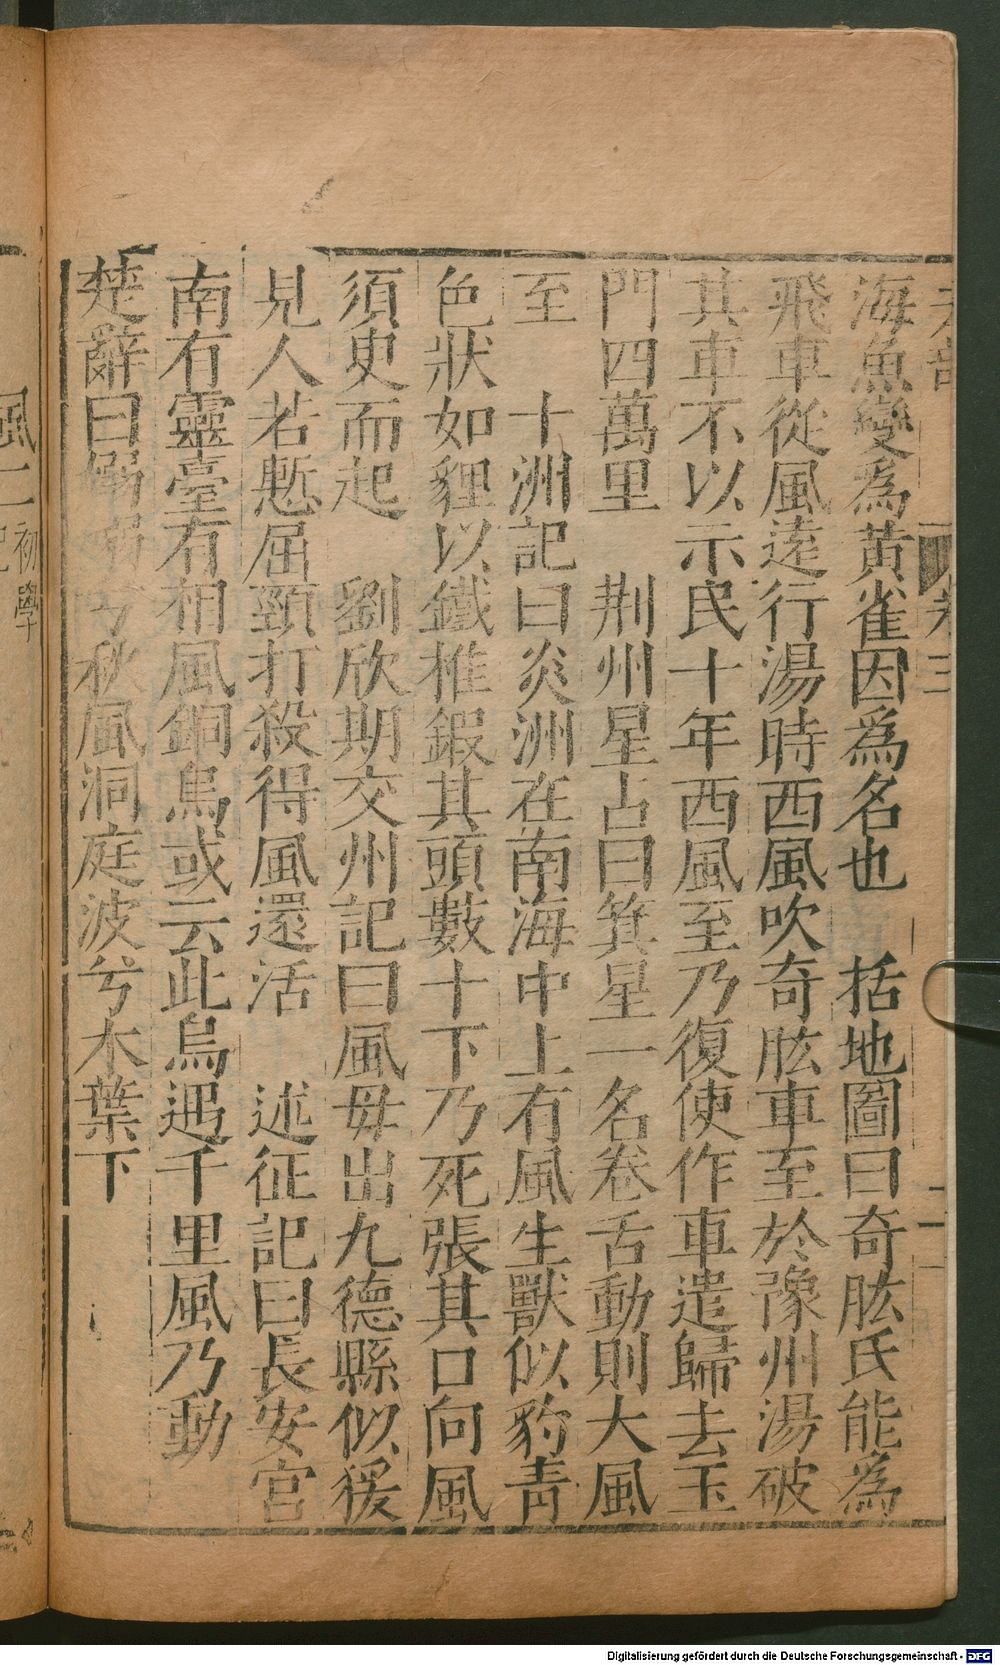 海魚變為黃雀因爲名也　括地圖曰奇肱氏能為
飛車從風遠行湯時西風吹奇肱車至於豫州湯破
其車不以示民十年西風至乃復使作車遣歸去玉
門四萬里　荆州星占曰箕星一名卷舌動則大風
至　十洲記曰炎洲在南海中上有風生獸似豹青
色狀如貍以鐵椎鍜其頭數十下乃死張其口向風
須史而起　劉欣期交州記曰風毋出九德縣似猨
見人若慙屈頸打殺得風還活　述征記曰長安宮
南有靈臺有相風銅烏或云此烏遇千里風乃動
楚辭曰兮秋風洞庭波兮木葉下
風二
初學
Digitalisierung gefördert durch die Deutsche Forschungsgemeinschaft - DFG